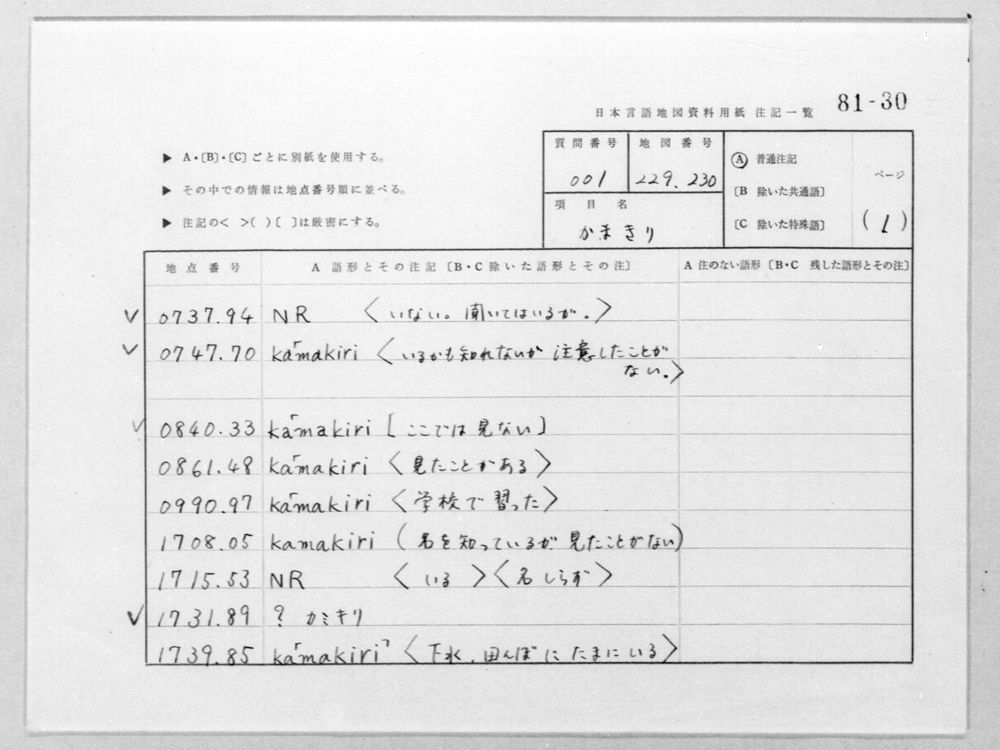 81-30
日本言語地図資料用紙 注記一覧
▶ A・〔B〕・〔C〕ごとに別紙を使用する。
▶ その中での情報は地点番号順に並べる。
▶ 注記の< >( )〔 〕は厳密にする。
質問番号 地図番号
001 229.230
項目名
かまきり
Ⓐ 普通注記
〔B 除いた共通語〕
〔C 除いた特殊語〕
ページ
(1)
地点番号 A 語形とその注記〔B・C除いた語形とその注〕 A 注のない語形〔B・C 残した語形とその注〕
✓ 0737.94 NR 〈いない。聞いてはいるが.〉
✓ 0747.70 ka｢makiri 〈いるかも知れないが 注意したことが
ない.〉
✓ 0840.33 ka｢makiri [ここでは見ない]
0861.48 ka｢makiri 〈見たことがある〉
0990.97 ka｢makiri 〈学校で習った〉
1708.05 kamakiri (名を知っているが見たことがない)
1715.53 NR 〈いる〉〈名しらず〉
✓ 1731.89 ? カミキリ
1739.85 ka｢makiri｣ 〈下水,田んぼにたまにいる〉